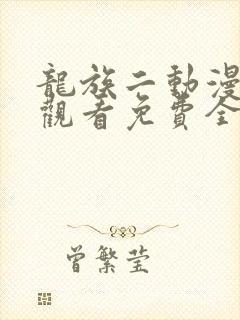 龍族二動漫
觀看免費全
曾繁莹